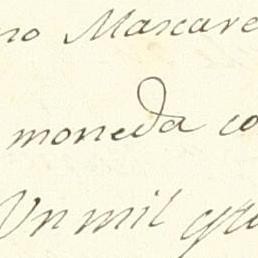 no Mascare
moneda co
Un mil qu